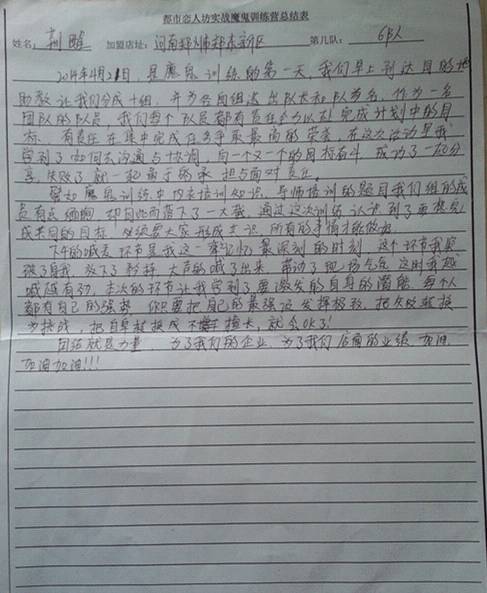 都市恋人坊实战魔鬼训练营总结表
姓名： 荆 加盟店址：河南郑州郑东新区 第几队： 6队人
2014年4月21日，是魔鬼训练的第一天，我们早上到达目的地
助教让我们分成十组，并为各自组选出队长和队名，作为一名
团队的队员，我们每个队员都有责任全力以赴完成计划中的目
标。有责任在集中完成任务争取最高的荣誉，在这次活动里我
学到了如何去沟通与协调，向一个又一个的目标奋斗，成功了一起分
享，失败了就一起勇于承担与面对责任。
譬如魔鬼训练中内衣培训知识，导师培训的题目我们组的成
员有点 ，却因此而落下了一大截，通过这次训练认识到了要想完
成共同的目标，必须要大家形成共识，所有的事情才能做好。
下午的喊麦环节是我这一辈记忆最深刻的时刻，这个环节我超
越了自我，放下了 ，大声的喊了出来，带动了现场气氛，这时我越
喊越有劲，本次的环节让我学到了要激发的自身的潜能，每个人
都有自己的强势，你只要把自己的最强项发挥极致，把失败转换
为挑战，把自卑转换成 擅长，就会OK了！
团结就是力量 为了我们的企业，为了我们店面的业绩，加油，
加油加油！！！